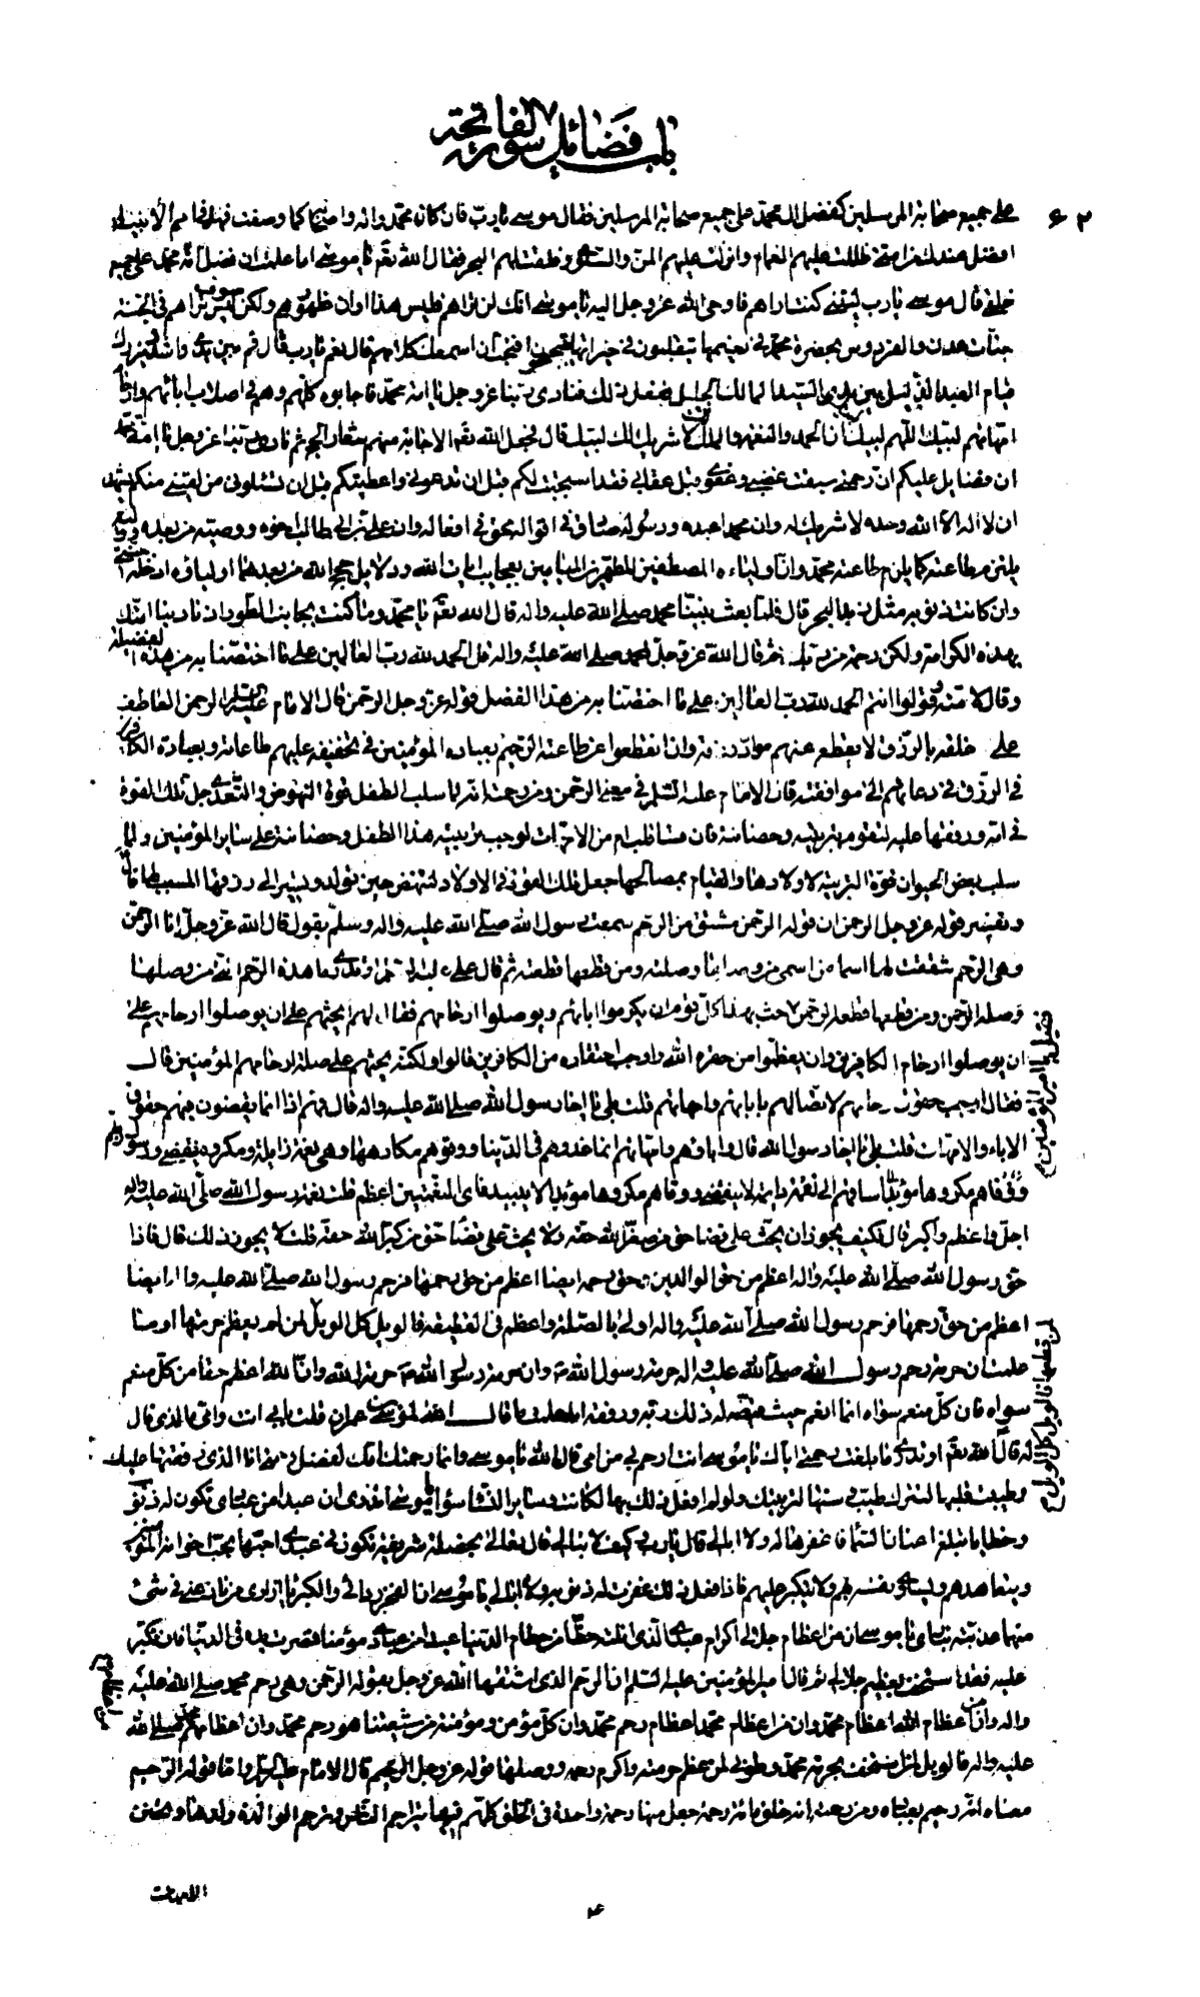 باب فضائل سورة الفاتحة
على جميع صحابة المرسلين كفضل ال محمد على جميع صحابة المرسلين فقال موسى يا رب فان كان محمد واله واصحابه كما وصفت فهل في امم الأنبياء
افضل عندك من امتي ظللت عليهم الغمام وانزلت عليهم المن والسلوى وفلقت لهم البحر فقال الله تعم يا موسى اما علمت ان فضل امة محمد على جميع
خلقي قال موسى يا رب ليتني كنت اراهم فاوحى الله عز وجل اليه يا موسى انك لن تراهم فليس هذا اوان ظهورهم ولكن سوف تراهم في الجنة
جنات عدن والفردوس بحضرة محمد في نعيمها يتقلبون في خيراتها يتبحبحون افتحب ان اسمعك كلامهم قال نعم يا رب قال قم بين يدي واشدد ميزرك
قيام العبد الذليل بين يدي السيد المالك الجليل ففعل ذلك فنادى ربنا عز وجل يا امة محمد فاجابوه كلهم وهم في اصلاب ابائهم وارحام
امهاتهم لبيك اللهم لبيك ان الحمد والنعمة والملك لك لا شريك لك لبيك قال فجعل الله تعم الاجابة منهم شعار الحج ثم نادى ربنا عز وجل يا امة محمد
ان قضايى عليكم ان رحمتي سبقت غضبي وعفوي قبل عقابي فقد استجبت لكم قبل ان تدعوني واعطيتكم قبل ان تسئلوني من لقيني منكم يشهد
ان لا اله الا الله وحده لا شريك له وان محمدا عبده ورسوله صادق في اقواله محق في افعاله وان علي بن ابي طالب اخوه ووصيه من بعده ووليه
يلتزم طاعته كما يلتزم طاعة محمد وان اولياءه المصطفين المطهرين المباينين بعجايب ايات الله ودلايل حجج الله من بعدهما اولياؤه ادخله جنتي
وان كانت ذنوبه مثل زبد البحر قال فلما بعث نبينا محمد صلى الله عليه واله قال الله تعم يا محمد وما كنت بجانب الطور اذ نادينا امتك
بهذه الكرامة ولكن رحمة من ربك ثم قال الله عز وجل لمحمد صلى الله عليه واله قل الحمد لله رب العالمين على ما اختصنا به من هذه الفضيلة
وقال لامته وقولوا انتم الحمد لله رب العالمين على ما اختصنا به من هذا الفضل قوله عز وجل الرحمن قال الامام عليه السلم الرحمن العاطف
على خلقه بالرزق لا يقطع عنهم مواد رزقه وان انقطعوا عن طاعته الرحيم بعباده المؤمنين في تخفيفه عليهم طاعاته وبعباده الكافرين
في الرزق في دعائهم الى موافقته قال الامام عليه السلم في معنى الرحمن ومن رحمته انه لما سلب الطفل قوة النهوض والتغذي جعل تلك القوة
في امه ورققها عليه لتقوم بتربيته وحضانته فان قسا قلب ام من الامهات لوجب تربية هذا الطفل وحضانته على ساير المؤمنين ولما
سلب بعض الحيوان قوة التربية لاولادها والقيام بمصالحها جعل تلك القوة في الاولاد لتنهض حين تولد وتسير الى رزقها المسبب لها قال
وتفسير قوله عز وجل الرحمن ان قوله الرحمن مشتق من الرحم سمعت رسول الله صلى الله عليه واله وسلم يقول قال الله عز وجل انا الرحمن
وهي الرحم شققت لها اسما من اسمي من وصلها وصلته ومن قطعها قطعته ثم قال علي او تدري ما هذه الرحم التي من وصلها
وصله الرحمن ومن قطعها قطعه الرحمن فقيل يا امير المؤمنين حث بهذا كل قوم ان يكرموا ابائهم ويوصلوا ارحامهم فقال لهم ايحثهم على ان يوصلوا ارحامهم على
ان يوصلوا ارحام الكافرين وان يعظموا من حقره الله واوجب احتقاره من الكافرين قالوا ولكنه يحثهم على صلة ارحامهم المؤمنين قال
فقال اوجب حقوق رحامهم لاتصالهم بابائهم وامهاتهم قلت بلى يا اخا رسول الله صلى الله عليه واله قال فهم اذا انما يقضون فيهم حقوق
الاباء والامهات قلت بلى يا اخا رسول الله قال وابائهم وامهاتهم انما غذوهم في الدنيا ووقوهم مكارهها وهي نعمة زايلة ومكروه ينقضي ورسول ربهم
ساقهم الى نعمة دايمة لا ينقضي ووقاهم مكروها مؤبدا لا يبيد فاي النعمتين اعظم قلت نعمة رسول الله صلى الله عليه واله
اجل واعظم واكبر قال فكيف يجوز ان يحث على قضا حق من صغر الله حقه ولا يحث على قضا حق من كبر الله حقه قلت لا يجوز ذلك قال فاذا
حق رسول الله صلى الله عليه واله اعظم من حق الوالدين وحق رحمه ايضا اعظم من حق رحمهما فرحم رسول الله صلى الله عليه واله ايضا
اعظم من حق رحمهما فرحم رسول الله صلى الله عليه واله اولى بالصلة واعظم في القطيعة فالويل كل الويل لمن قطعها فالويل كل الويل لمن لم يعظم حرمتها اوما
علمت ان حرمة رحم رسول الله صلى الله عليه واله حرمة رسول الله وان حرمة رسول الله حرمة الله وان الله اعظم حقا من كل منعم
سواه فان كل منعم سواه انما انعم حيث قيضه له ذلك ربه ووفقه اما علمت ما قال الله لموسى بن عمران قلت بابي انت وامي ما الذي قال
له قال قال الله تعم اوتدري ما بلغت رحمتي اياك يا موسى انت ارحم بي من امي قال الله يا موسى وانما رحمتك امك لفضل رحمتي انا الذي رققتها عليك
وطيبت قلبها لتترك طيب وسنها لتربيتك ولو لم افعل ذلك بها لكانت وساير النساء سواء يا موسى اتدري ان عبدا من عبادي تكون له ذنوب
وخطايا تبلغ اعنان السماء فاغفرها له ولا ابالي قال يا رب وكيف لا تبالي قال تعالى لخصلة شريفة تكون في عبدي احبها يحب اخوانه المؤمنين
ويتعاهدهم ويساوي نفسه بهم ولا يتكبر عليهم فاذا فعل ذلك غفرت له ذنوبه ولا ابالي يا موسى ان الفخر ردائي والكبرياء ازاري من نازعني في شئ
منهما عذبته بناري يا موسى ان من اعظام جلالي اكرام عبدي الذي انلته حظا من حطام الدنيا عبدا من عبادي مؤمنا قصرت يده في الدنيا فان تكبر
عليه فقد استخف بعظيم جلالي ثم قال امير المؤمنين عليه السلم ان الرحم الذي اشتقها الله عز وجل بقوله الرحمن وهي رحم محمد صلى الله عليه
واله وان من اعظام الله اعظام محمد وان من اعظام محمد اعظام رحم محمد وان كل مؤمن ومؤمنة من شيعتنا هو رحم محمد وان اعظامهم اعظام محمد صلى الله
عليه واله فالويل لمن استخف بحرمة محمد وطوبى لمن عظم حرمته واكرم رحمه ووصلها قوله عز وجل الرحيم قال الامام عليه السلم واما قوله الرحيم
معناه انه رحيم بعباده ومن رحمته انه خلق مائة رحمة جعل منها رحمة واحدة في الخلق كلهم فبها يتراحم الناس وترحم الوالدة ولدها وتحنن
الامهات